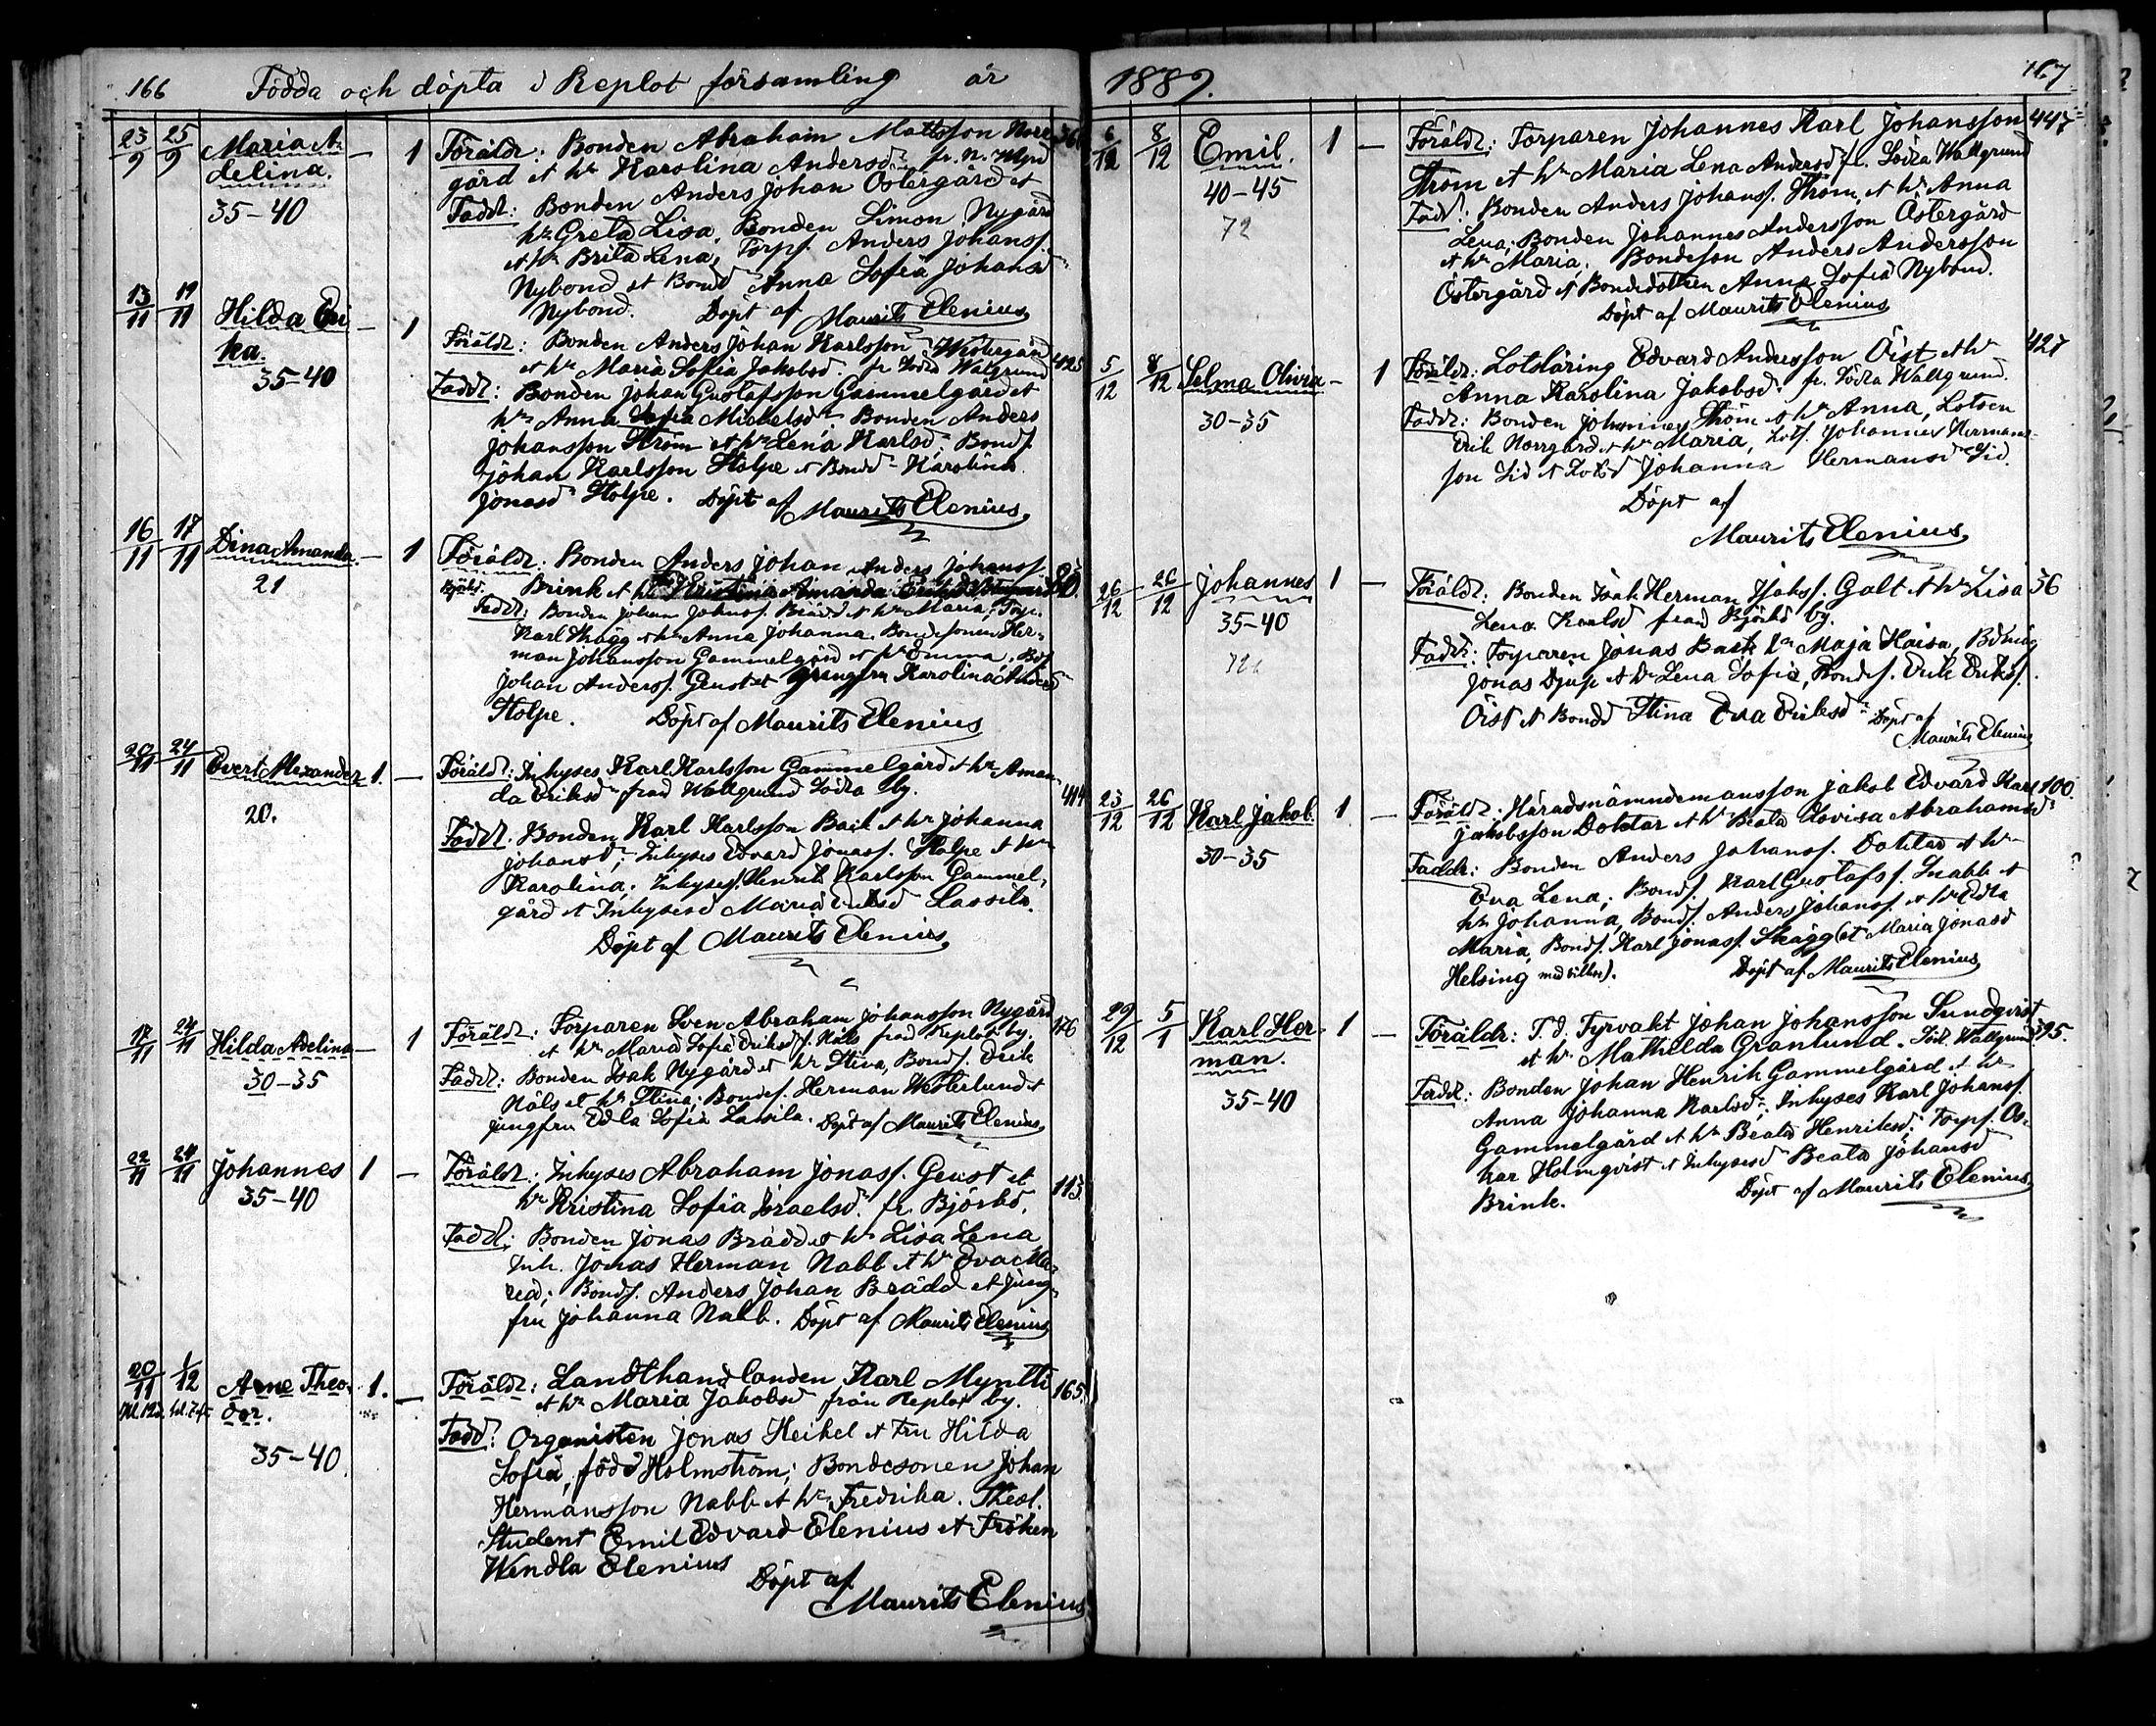 166 Födda och döpta i Replot församling år
23/9 25/9 Maria A=
delina.
35-40
— 1 Föräldr: Bonden Abraham Mattsson Norr 361
gård et hr Karolina Andersdr fr. N.
Faddr: Bonden Anders Johan Östergård et
hr Greta Lisa, Bonden Simon Nygård
et hr Brita Lena, Torpf. Anders Johansf.
Nybond et Bondd Anna Sofia Johansd
Nybond. Döpt af Maurits Elenius
13/11 19/11 Hilda Eri
ka.
35-40
— 1 Föräldr: Bonden Anders Johan Karlsson Westergård
et hr Maria Sofia Jakobsd. fr Södra Wallgrund 425
Faddr: Bonden Johan Gustafsson Gammelgård et
hr Anna Sofia Mickelsd Bonden Anders
Johansson Ström et hr Lena Karlsd; Bondf.
Johan Karlsson Stolpe et Bondd Karolina
Jonasd Stolpe. Döpt af Maurits Elenius,
16/11 17/11 Dina Amanda.
21
— 1 Föräldr: Bonden Anders Johan Anders Johansf
Brink et hr Kristina Amanda Eriksd
Faddr: Bonden Johan Johansf. Brädd et hr Maria; Torp.
Karl Skägg et hr Anna Johanna. Bondesonen Her=
man Johansson Gammelgård et hr Emma. Bdf
Johan Andersf. Geust et jungfru Karolina Andersd
Stolpe. Döpt af Maurits Elenius
20/11 24/11 Evert Alexander 1. —
20.
Föräld: Inhyses Karl Karlsson Gammelgård et hr Aman=
da Eriksd från Wallgrund Södra by. 414
Faddr. Bonden Karl Karlsson Back et hr Johanna
Johansd; Inhyses Edvard Jonasf. Stolpe et hr
Karolina; Inhysesf. Henrik Karlsson Gammel=
gård et Inhysesd Maria Eriksd Lassila.
Döpt af Maurits Elenius,
17/11 24/11 Hilda Adelina — 1
30-35
Föräldr: Torparen Sven Abraham Johansson Nygård 176
et hr Maria Sofia Eriksd f. Näls från Replot by.
Faddr: Bonden Isak Nygård et hr Stina, Bondf. Erik
Näls et hr Stina; Bondef. Herman Westerlund et
jungfru Edla Sofia Lassila. Döpt af Maurits Elenius,
22/11 24/11 Johannes 1 —
35-40
Föräldr: Inhyses Abraham Jonasf. Geust et 113
hr Kristina Sofia Israelsd. fr. Björkö,
Faddr: Bonden Jonas Brädd et hr Lisa Lena
Inh. Jonas Herman Nabb et hr Eva Ma=
ria; Bondf. Anders Johan Brädd et jung=
fru Johanna Nabb. Döpt af Maurits Elenius
20/11 1/12 Arne Theo= 1. —
dor.
35-40
Föräldr: Landthandlanden Karl Myntti 165
et hr Maria Jakobsd från Replot by.
Fadd: Organisten Jonas Heikel et Fru Hilda
Sofia, född Holmström; Bondesonen Johan
Hermansson Nabb et hr Fredrika. Theol.
Student Emil Edvard Elenius et Fröken
Wendla Elenius
Döpt af
Maurits Elenius
1889. 167
6/12 8/12 Emil. 1 —
40-45
72
Föräldr: Torparen Johannes Karl Johansson 447
Ström et hr Maria Lena Andersd fr. Södra Wallgrund
Fadd: Bonden Anders Johansf. Ström, et hr Anna
Lena. Bonden Johannes Andersson Östergård
et hr Maria; Bondeson Anders Andersson
Östergård et Bondedottren Anna Sofia Nybond.
Döpt af Maurits Elenius
5/12 8/12 Selma Olivia — 1
30-35
Föräldr: Lotsläring Edvard Andersson Öist et hr 427
Anna Karolina Jakobsd. fr. Södra Wallgrund.
Faddr: Bonden Johannes Ström et hr Anna, Lotsen
Erik Norrgård et hr Maria, Lotsf. Johannes Hermans-
son Sid et Lotsd Johanna Hermansd Sid.
Döpt af
Maurits Elenius,
26/12 26/12 Johannes 1 —
35-40
Föräldr: Bonden Isak Herman Isaksf. Galt et hr Lisa 36
Lena Karlsd från Björkö by.
Faddr: Torparen Jonas Bast hr Maja Kaisa,
Jonas Djup et hr Lena Sofia, Bondf. Erik Eriksf.
Öist et Bondd Stina Eva Eriksd Döpt af
Maurits Elenius
23/12 26/12 Karl Jakob. 1 —
30-35
Föräldr: Häradsnämndemansson Jakob Edvard Karl 100.
Jakobsson Doktar et hr Beata Lovisa Abrahamsd
Faddr: Bonden Anders Johansf. Doktar et hr
Eva Lena; Bondf. Karl Gustafsf. Snabb et
hr Johanna, Bondf. Anders Johansf. et hr Edla
Maria, Bondf. Karl Jonasf. Skägg (et Maria Jonasd
Helsing med villor). Döpt af Maurits Elenius
29/12 5/1 Karl Her= 1 —
man.
35-40
Föräldr: T. d. Fyrvakt Johan Johansson Sundqvist
et hr Mathilda Granlund. Söd. Wallgrund 395.
Faddr: Bonden Johan Henrik Gammelgård et hr
Anna Johanna Karlsd; Inhyses Karl Johansf.
Gammelgård et hr Beata Henriksd; Torpf. Os=
kar Holmqvist et Inhysesd Beata Johansd
Brink. Döpt af Maurits Elenius,